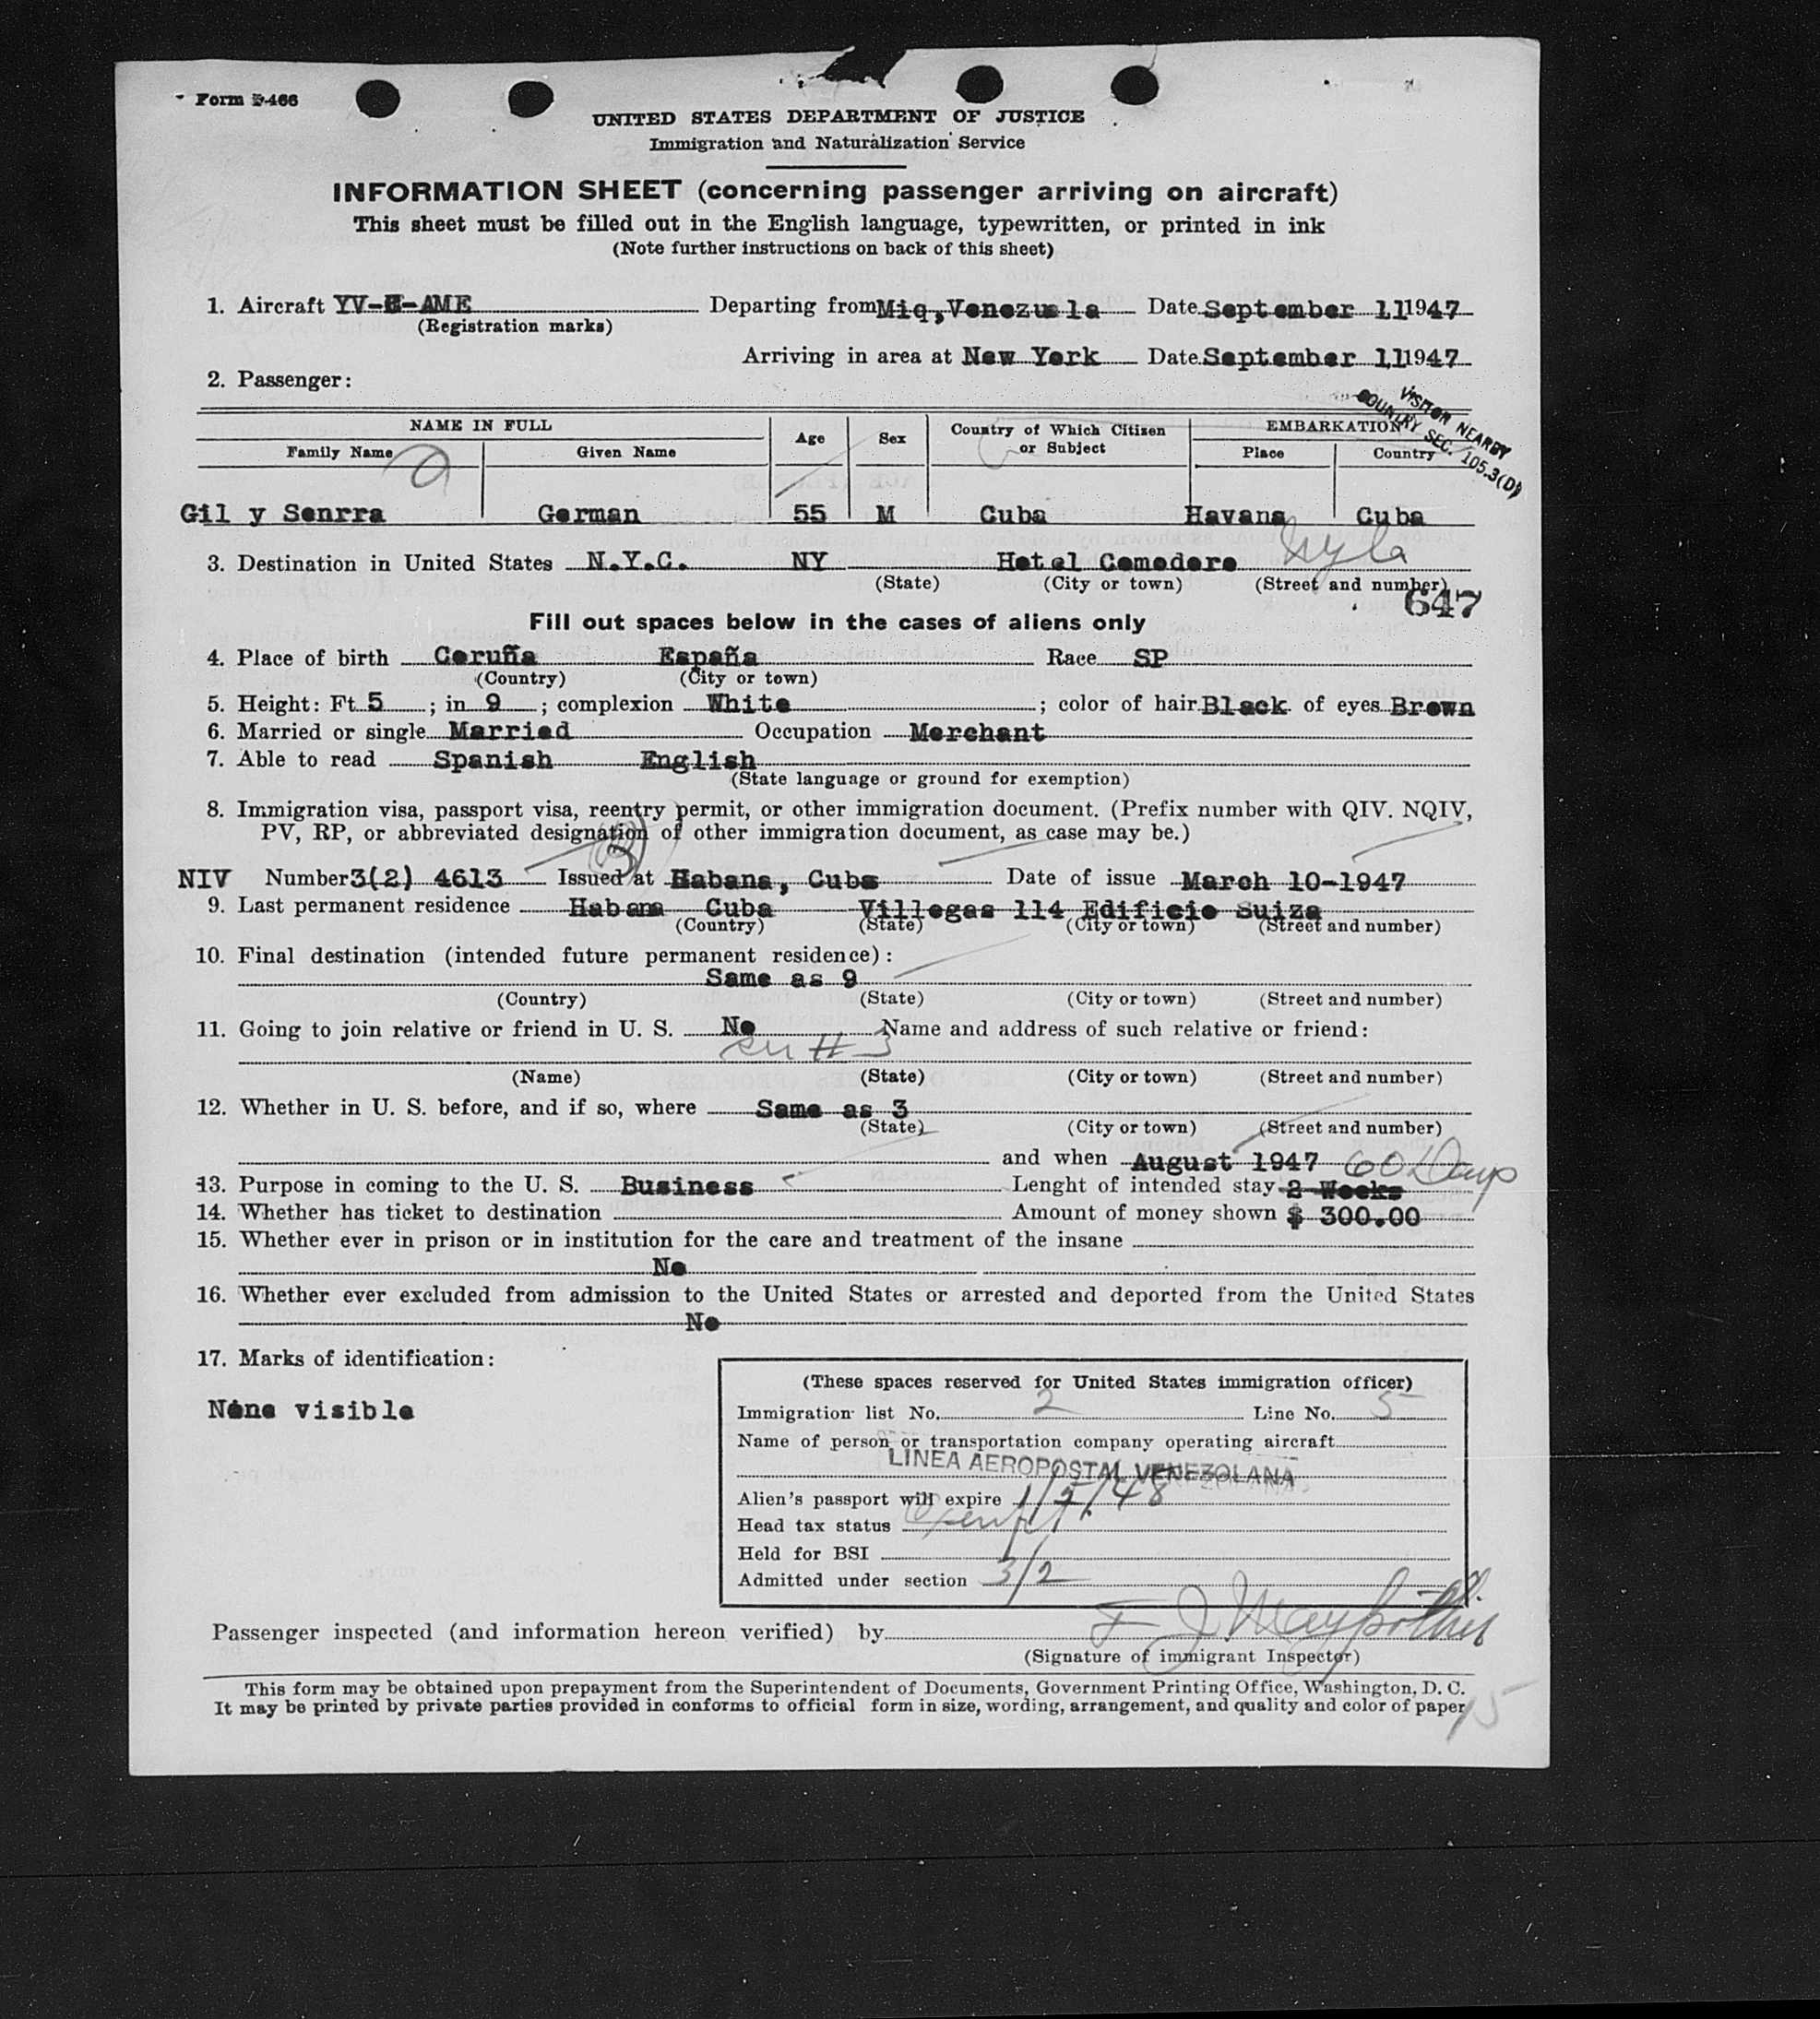 Form I-466
UNITED STATES DEPARTMENT OF JUSTICE
Immigration and Naturalization Service
INFORMATION SHEET (concerning passenger arriving on aircraft)
This sheet must be filled out in the English language, typewritten, or printed in ink
(Note further instructions on back of this sheet)
1. Aircraft YV-C-AME Departing from Miq, Venezuela Date September 11 1947
(Registration marks)
Arriving in area at New York Date September 11 1947
2. Passenger:
VISITOR NEARBY
COUNTRY SEC. 105.3(D)
NAME IN FULL Age Sex Country of Which Citizen or Subject EMBARKATION
Family Name Given Name Place Country
Gil y Senrra German 55 M Cuba Havana Cuba
3. Destination in United States N.Y.C. NY Hotel Comodoro
(State) (City or town) (Street and number)
647
Fill out spaces below in the cases of aliens only
4. Place of birth Coruña España Race SP
(Country) (City or town)
5. Height: Ft. 5 ; in 9 ; complexion White ; color of hair Black of eyes Brown
6. Married or single Married Occupation Merchant
7. Able to read Spanish English
(State language or ground for exemption)
8. Immigration visa, passport visa, reentry permit, or other immigration document. (Prefix number with QIV. NQIV,
PV, RP, or abbreviated designation of other immigration document, as case may be.)
NIV Number 3(2) 4613 Issued at Habana, Cuba Date of issue March 10-1947
9. Last permanent residence Habana Cuba Villegas 114 Edificio Suiza
(Country) (State) (City or town) (Street and number)
10. Final destination (intended future permanent residence):
Same as 9
(Country) (State) (City or town) (Street and number)
11. Going to join relative or friend in U. S. No Name and address of such relative or friend:
(Name) (State) (City or town) (Street and number)
12. Whether in U. S. before, and if so, where Same as 3
(State) (City or town) (Street and number)
and when August 1947 60 Days
13. Purpose in coming to the U. S. Business Lenght of intended stay 2 Weeks
14. Whether has ticket to destination Amount of money shown $ 300.00
15. Whether ever in prison or in institution for the care and treatment of the insane
No
16. Whether ever excluded from admission to the United States or arrested and deported from the United States
No
17. Marks of identification:
None visible
(These spaces reserved for United States immigration officer)
Immigration list No. 2 Line No. 5
Name of person or transportation company operating aircraft
LINEA AEROPOSTAL VENEZOLANA
Alien's passport will expire 1/5/48
Head tax status Exempt
Held for BSI
Admitted under section 3/2
Passenger inspected (and information hereon verified) by
(Signature of immigrant Inspector)
This form may be obtained upon prepayment from the Superintendent of Documents, Government Printing Office, Washington, D. C.
It may be printed by private parties provided in conforms to official form in size, wording, arrangement, and quality and color of paper
15